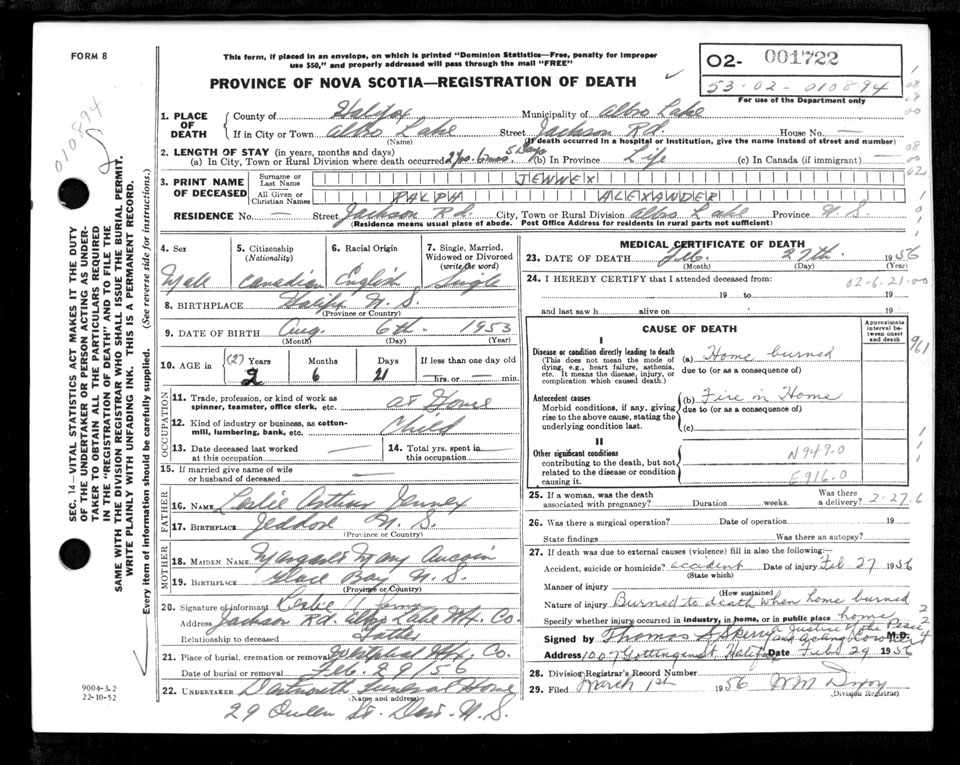 FORM 8
This form, if placed in an envelope, on which is printed "Dominion Statistics—Free, penalty for improper
use $50," and properly addressed will pass through the mail "FREE"
PROVINCE OF NOVA SCOTIA—REGISTRATION OF DEATH
02- 001722
53-02-010894
For use of the Department only
010894
SEC. 14—VITAL STATISTICS ACT MAKES IT THE DUTY
OF THE UNDERTAKER OR PERSON ACTING AS UNDER-
TAKER TO OBTAIN ALL THE PARTICULARS REQUIRED
IN THE "REGISTRATION OF DEATH" AND TO FILE THE
SAME WITH THE DIVISION REGISTRAR WHO SHALL ISSUE THE BURIAL PERMIT.
WRITE PLAINLY WITH UNFADING INK. THIS IS A PERMANENT RECORD.
Every item of information should be carefully supplied. (See reverse side for instructions.)
1. PLACE OF DEATH
County of Halifax Municipality of Albro Lake
If in City or Town Albro Lake Street Jackson Rd. House No. —
(Name) (If death occurred in a hospital or institution, give the name instead of street and number)
2. LENGTH OF STAY (in years, months and days)
(a) In City, Town or Rural Division where death occurred 2 yrs. 6 mos. 5 Days (b) In Province Life (c) In Canada (if immigrant) —
3. PRINT NAME OF DECEASED
Surname or Last Name JENNEX
All Given or Christian Names RALPH ALEXANDER
RESIDENCE No. — Street Jackson Rd. City, Town or Rural Division Albro Lake Province N.S.
(Residence means usual place of abode. Post Office Address for residents in rural parts not sufficient)
4. Sex
Male
5. Citizenship (Nationality)
Canadian
6. Racial Origin
English
7. Single, Married, Widowed or Divorced (write the word)
Single
8. BIRTHPLACE Halifax N.S.
(Province or Country)
9. DATE OF BIRTH Aug. 6th. 1953
(Month) (Day) (Year)
10. AGE in (2) Years Months Days If less than one day old
2 6 21 — hrs. or — min.
OCCUPATION
11. Trade, profession, or kind of work as
spinner, teamster, office clerk, etc. at Home
12. Kind of industry or business, as cotton-
mill, lumbering, bank, etc. Child
13. Date deceased last worked at this occupation —
14. Total yrs. spent in this occupation —
15. If married give name of wife
or husband of deceased —
FATHER
16. NAME Leslie Jennex
17. BIRTHPLACE Jeddore N.S.
(Province or Country)
MOTHER
18. MAIDEN NAME Margaret Mary Aucoin
19. BIRTHPLACE Glace Bay N.S.
(Province or Country)
20. Signature of informant Leslie
Address Jackson Rd. Albro Lake Hfx Co.
Relationship to deceased Father
21. Place of burial, cremation or removal Westphal Hfx. Co.
Date of burial or removal Feb. 29/56
22. UNDERTAKER Dartmouth Funeral Home
(Name and address)
29 Queen St. Dart. N.S.
9004-3.2
22-10-52
MEDICAL CERTIFICATE OF DEATH
23. DATE OF DEATH Feb. 27th. 1956
(Month) (Day) (Year)
24. I HEREBY CERTIFY that I attended deceased from:
02-6-21-00
19 to 19
and last saw h alive on 19
CAUSE OF DEATH
Approximate interval between onset and death
I
Disease or condition directly leading to death
(This does not mean the mode of
dying, e.g., heart failure, asthenia,
etc. It means the disease, injury, or
complication which caused death.)
(a) Home burned
due to (or as a consequence of)
Antecedent causes
Morbid conditions, if any, giving
rise to the above cause, stating the
underlying condition last.
(b) Fire in Home
due to (or as a consequence of)
(c)
II
Other significant conditions
contributing to the death, but not
related to the disease or condition
causing it.
N949.0
E916.0
961
25. If a woman, was the death
associated with pregnancy? Duration weeks. Was there a delivery? 2-27.6
26. Was there a surgical operation? Date of operation 19
State findings Was there an autopsy?
27. If death was due to external causes (violence) fill in also the following:
Accident, suicide or homicide? accident Date of injury Feb 27 1956
(State which)
Manner of injury
(How sustained)
Nature of injury Burned to death when home burned
Specify whether injury occurred in industry, in home, or in public place home
Signed by Thomas a Justice of the Peace and acting Coroner M.D.
Address 1007 Gottingen St. Halifax Date Feb 29 1956
28. Division Registrar's Record Number
29. Filed March 1st 1956
(Division Registrar)